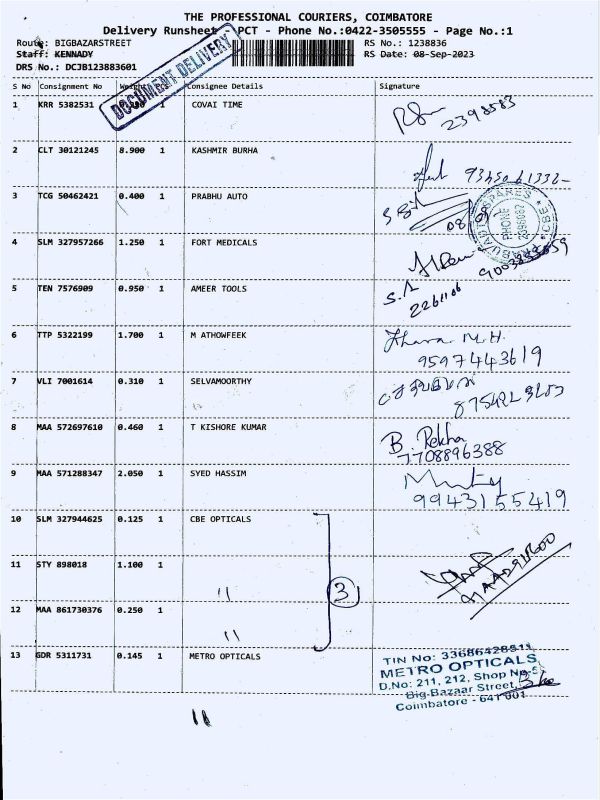 THE PROFESSIONAL COURIERS, COIMBATORE
Delivery Runsheet - PCT - Phone No.:0422-3505555 - Page No.:1
Route: BIGBAZARSTREET RS No.: 1238836
Staff: KENNADY RS Date: 08-Sep-2023
DRS No.: DCJB123883601
DOCUMENT DELIVERY
S No Consignment No Weight Pcs Consignee Details Signature
1 KRR 5382531 COVAI TIME
2398583
2 CLT 30121245 8.900 1 KASHMIR BURHA
3 TCG 50462421 0.400 1 PRABHU AUTO
PHONE 2396082
CBE
4 SLM 327957266 1.250 1 FORT MEDICALS
5 TEN 7576909 0.950 1 AMEER TOOLS
6 TTP 5322199 1.700 1 M ATHOWFEEK
M.H.
9597443619
7 VLI 7001614 0.310 1 SELVAMOORTHY
8 MAA 572697610 0.460 1 T KISHORE KUMAR
B. Rekha
7708896388
9 MAA 571288347 2.050 1 SYED HASSIM
9943155419
10 SLM 327944625 0.125 1 CBE OPTICALS
11 STY 898018 1.100 1
"
3
12 MAA 861730376 0.250 1
"
13 GDR 5311731 0.145 1 METRO OPTICALS
TIN No: 33686428511
METRO OPTICALS
D.No: 211, 212, Shop No-5
Big Bazaar Street,
Coimbatore - 641 001